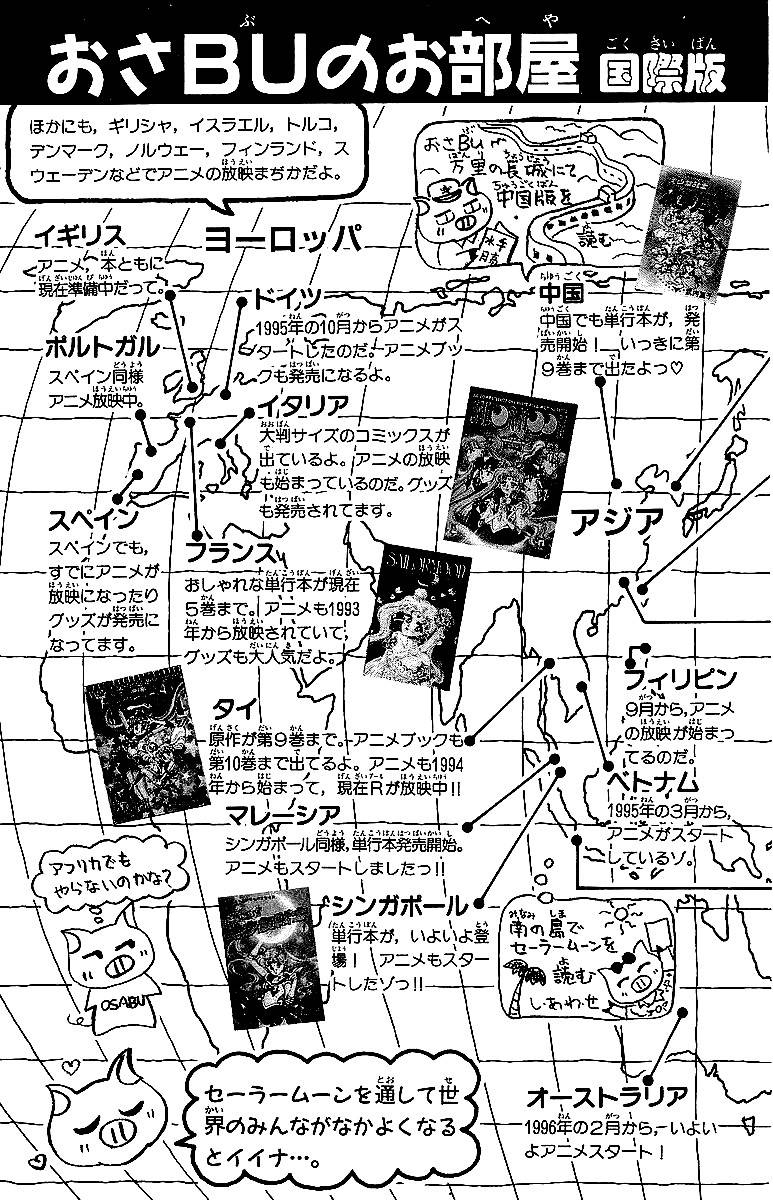 おさBUのお部屋 国際版
ほかにも，ギリシャ，イスラエル，トルコ，
デンマーク，ノルウェー，フィンランド，ス
ウェーデンなどでアニメの放映まぢかだよ。
おさBU
万里の長城にて
中国版を
読む
ヨーロッパ
イギリス
アニメ，本ともに
現在準備中だって。
ドイツ
1995年の10月からアニメがス
タートしたのだ。アニメブッ
クも発売になるよ。
中国
中国でも単行本が，発
売開始！ いっきに第
9巻まで出たよっ♡
ポルトガル
スペイン同様
アニメ放映中。
イタリア
大判サイズのコミックスが
出ているよ。アニメの放映
も始まっているのだ。グッズ
も発売されてます。
スペイン
スペインでも，
すでにアニメが
放映になったり
グッズが発売に
なってます。
フランス
おしゃれな単行本が現在
5巻まで。アニメも1993
年から放映されていて，
グッズも大人気だよ。
アジア
SAILORMOON
フィリピン
9月から，アニメ
の放映が始まっ
てるのだ。
タイ
原作が第9巻まで。アニメブックも
第10巻まで出てるよ。アニメも1994
年から始まって，現在Rが放映中!!
ベトナム
1995年の3月から，
アニメがスタート
しているゾ。
マレーシア
シンガポール同様，単行本発売開始。
アニメもスタートしましたっ!!
アフリカでも
やらないのかな?
OSABU
シンガポール
単行本が，いよいよ登
場！ アニメもスター
トしたゾっ!!
南の島で
セーラームーンを
読む
しあわせ
セーラームーンを通して世
界のみんながなかよくなる
とイイナ…。
オーストラリア
1996年の2月から，いよい
よアニメスタート！